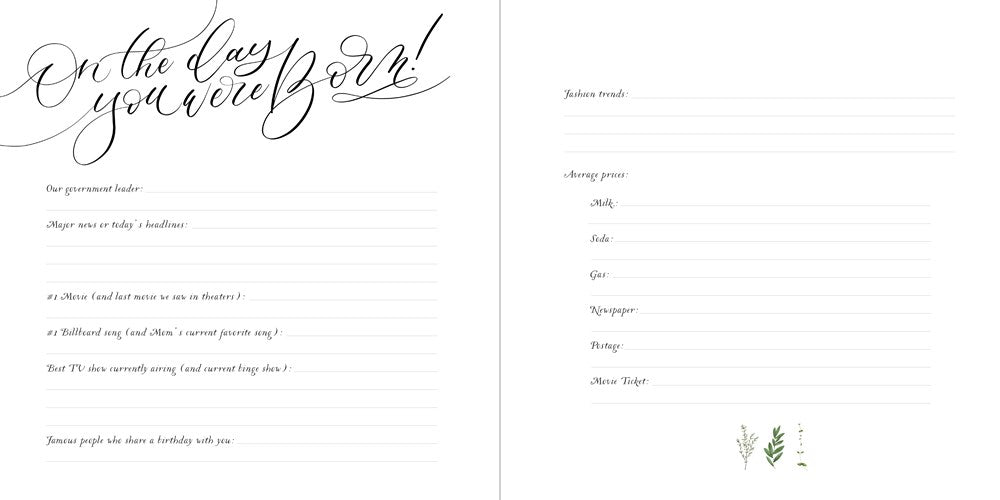 On the day
you were Born!
Our government leader:
Major news or today's headlines:
#1 Movie (and last movie we saw in theaters):
#1 Billboard song (and Mom's current favorite song):
Best TV show currently airing (and current binge show):
Famous people who share a birthday with you:
Fashion trends:
Average prices:
Milk:
Soda:
Gas:
Newspaper:
Postage:
Movie Ticket: